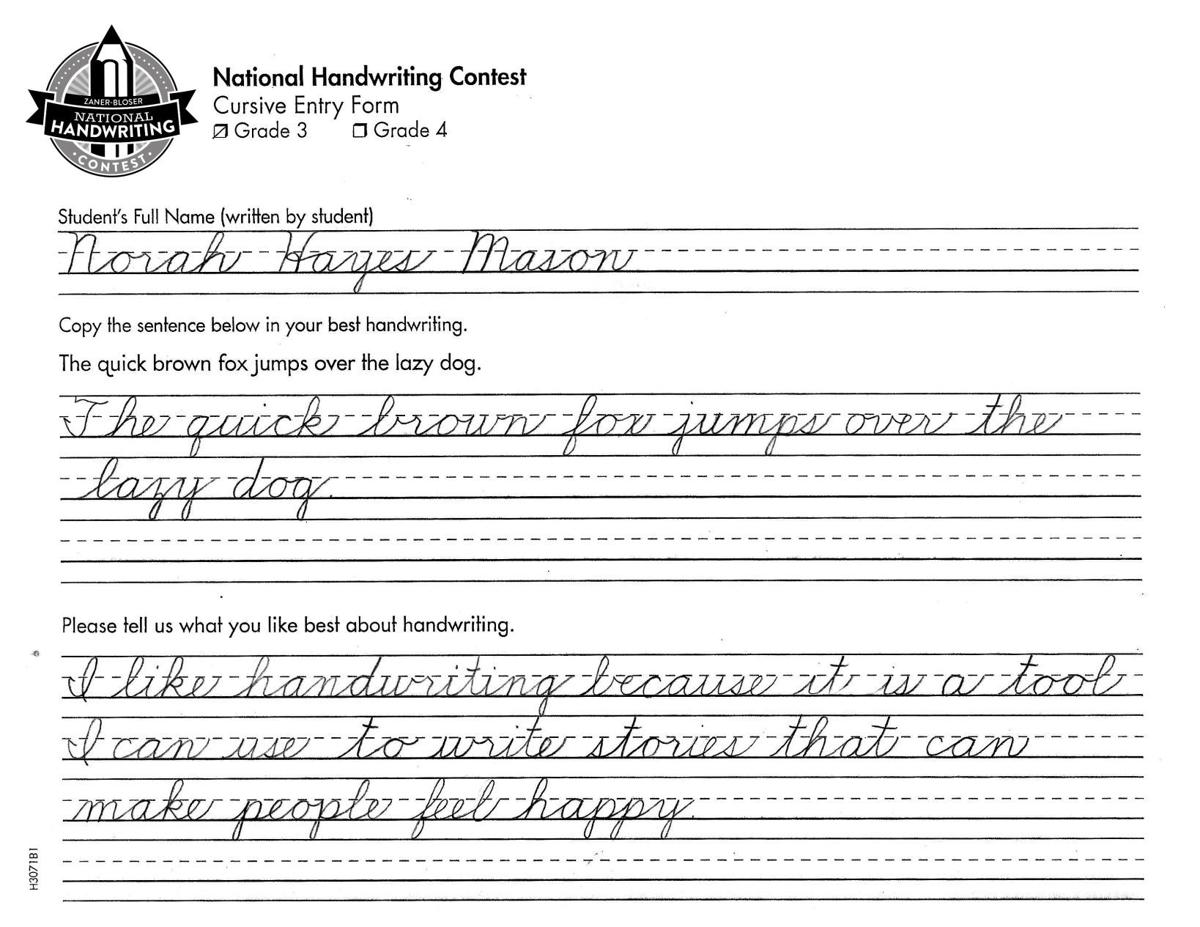 ZANER-BLOSER
NATIONAL
HANDWRITING
CONTEST
National Handwriting Contest
Cursive Entry Form
Grade 3 Grade 4
Student's Full Name (written by student)
Norah Hayes Mason
Copy the sentence below in your best handwriting.
The quick brown fox jumps over the lazy dog.
The quick brown fox jumps over the
lazy dog.
Please tell us what you like best about handwriting.
I like handwriting because it is a tool
I can use to write stories that can
make people feel happy.
H3071B1